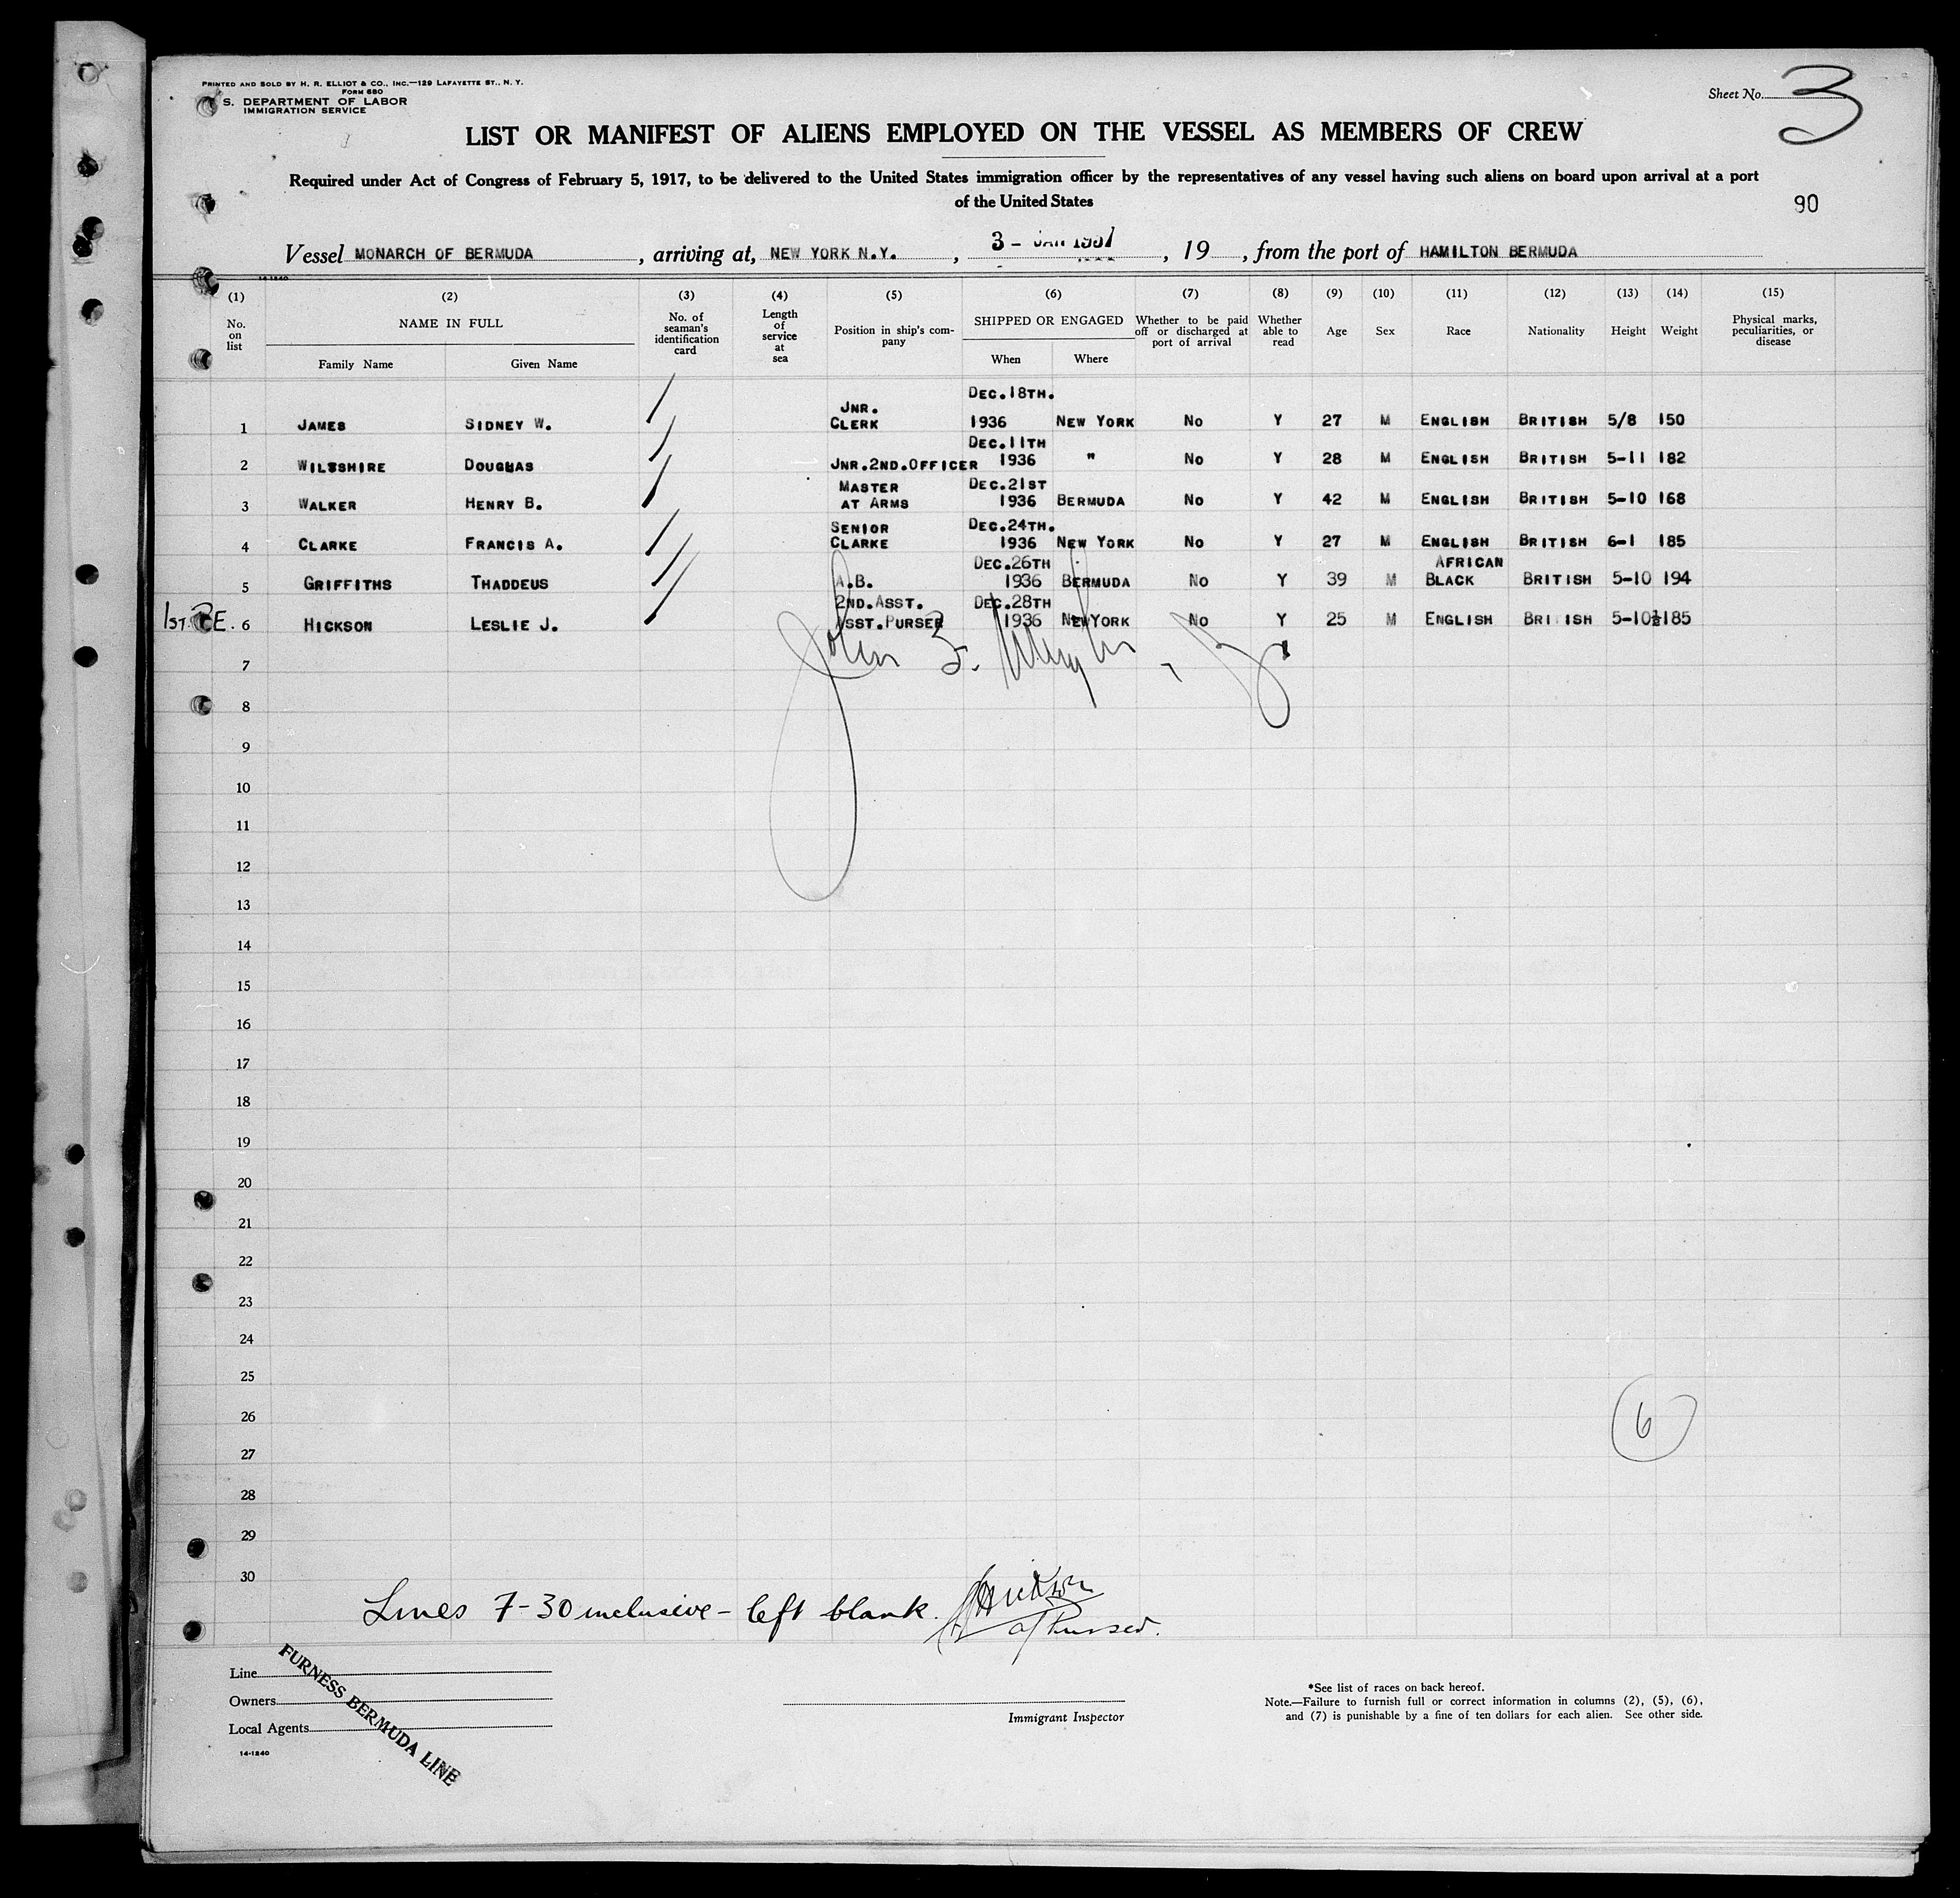 PRINTED AND SOLD BY H. R. ELLIOT & CO., INC.—129 LAFAYETTE ST., N. Y.
FORM 680
S. DEPARTMENT OF LABOR
IMMIGRATION SERVICE
Sheet No. 3
LIST OR MANIFEST OF ALIENS EMPLOYED ON THE VESSEL AS MEMBERS OF CREW
Required under Act of Congress of February 5, 1917, to be delivered to the United States immigration officer by the representatives of any vessel having such aliens on board upon arrival at a port
of the United States
90
Vessel MONARCH OF BERMUDA, arriving at, NEW YORK N.Y., 3 - JAN 1937, 19 , from the port of HAMILTON BERMUDA
14-1240
(1) (2) (3) (4) (5) (6) (7) (8) (9) (10) (11) (12) (13) (14) (15)
No. on list
NAME IN FULL
Family Name Given Name
No. of seaman's identification card
Length of service at sea
Position in ship's company
SHIPPED OR ENGAGED
When Where
Whether to be paid off or discharged at port of arrival
Whether able to read
Age Sex Race Nationality Height Weight
Physical marks, peculiarities, or disease
1 JAMES SIDNEY W. JNR. CLERK DEC.18TH. 1936 NEW YORK NO Y 27 M ENGLISH BRITISH 5/8 150
2 WILSSHIRE DOUGHAS JNR.2ND.OFFICER DEC.11TH 1936 " NO Y 28 M ENGLISH BRITISH 5-11 182
3 WALKER HENRY B. MASTER AT ARMS DEC.21ST 1936 BERMUDA NO Y 42 M ENGLISH BRITISH 5-10 168
4 CLARKE FRANCIS A. SENIOR CLARKE DEC.24TH. 1936 NEW YORK NO Y 27 M ENGLISH BRITISH 6-1 185
5 GRIFFITHS THADDEUS A.B. DEC.26TH 1936 BERMUDA NO Y 39 M AFRICAN BLACK BRITISH 5-10 194
1ST. 6 HICKSON LESLIE J. 2ND.ASST. ASST.PURSER DEC.28TH 1936 NEWYORK NO Y 25 M ENGLISH BRITISH 5-10½ 185
John
7
8
9
10
11
12
13
14
15
16
17
18
19
20
21
22
23
24
25
26
27
28
29
30
6
Lines 7-30 inclusive - left blank.
Line
Owners
Local Agents
14-1240
FURNESS BERMUDA LINE
Immigrant Inspector
*See list of races on back hereof.
Note.—Failure to furnish full or correct information in columns (2), (5), (6),
and (7) is punishable by a fine of ten dollars for each alien. See other side.